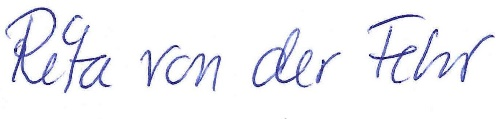 Rita von der Fehr